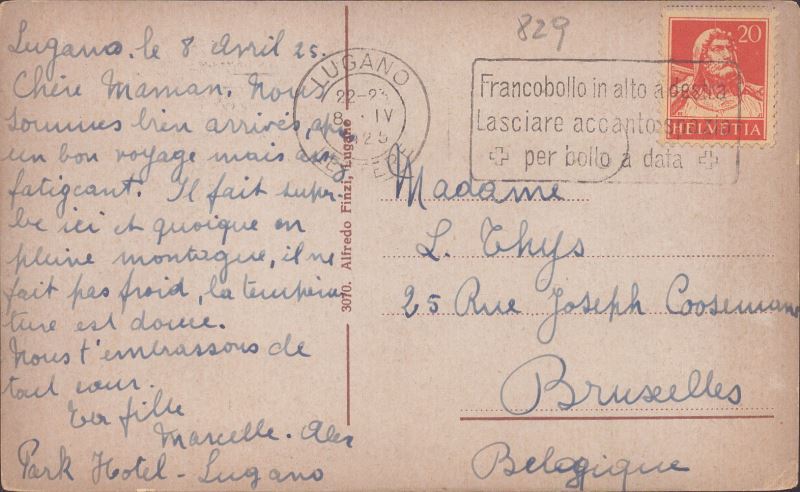 829
Lugano, le 8 Avril 25.
Chère Maman. Nous
sommes bien arrivés, après
un bon voyage mais assez
fatigcant. Il fait super-
be ici et quoique en
pleine montagne, il ne
fait pas froid, la tempéra
ture est douce.
Nous t'embrassons de
tout cœur.
Ta fille
Marcelle. Alex
Park Hotel - Lugano
3070. Alfredo Finzi, Lugano
LUGANO
22-23
8 IV
1925
Francobollo in alto a destra
Lasciare accanto spazio
per bollo a data
20
HELVETIA
Madame
L. Thys
25 Rue Joseph Coosemans
Bruxelles
Belgique